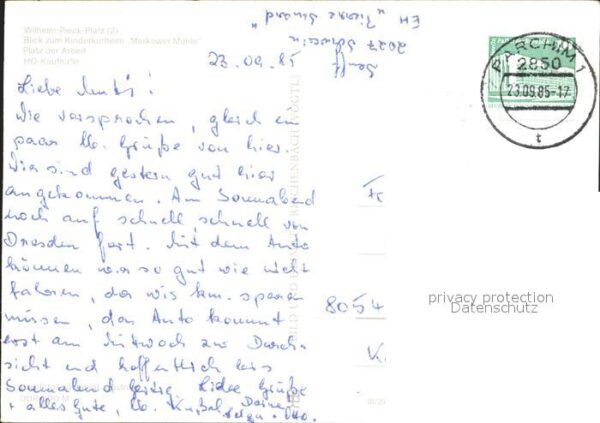 Wilhelm-Pieck-Platz (2)
Blick zum Kinderkurheim „Markower Mühle"
Platz der Arbeit
HO-Kaufhalle
EH „Pierre
2027 Schwerin
23.09.85
PARCHIM 1
2850
23.09.85-17
t
Liebe
Wie versprochen, gleich ein
paar lb. Grüße von hier.
Wir sind gestern gut hier
angekommen. Am Sonnabend
noch auf schnell, schnell von
Dresden fort. Mit dem Auto
können wir so gut wie nicht
fahren, da wir km. sparen
müssen, das Auto kommt
erst am Mittwoch zur Durch-
sicht und hoffentlich bis
Sonnabend fertig. Liebe Grüße
+ alles Gute, lb. Deine
Helga + Otto.
8054
K.
privacy protection
Datenschutz